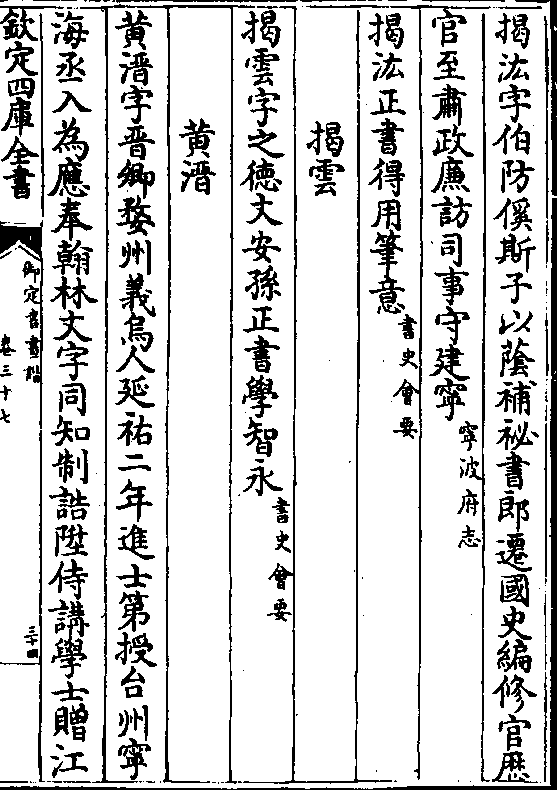 揭汯字伯防傒斯子以蔭補祕書郎遷國史編修官歴
官至肅政廉訪司事守建寧寧波府志
揭汯正書得用筆意書史會要
揭雲
揭雲字之徳大安孫正書學智永書史會要
黄溍
黄溍字晋卿婺州義烏人延祐二年進士第授台州寧
海丞入為應奉翰林文字同知制誥陞侍講學士贈江
欽定四庫全書
御定書畫譜
卷三十七
三十四